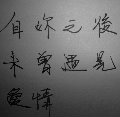 自妳之後
未曾遇見
愛情